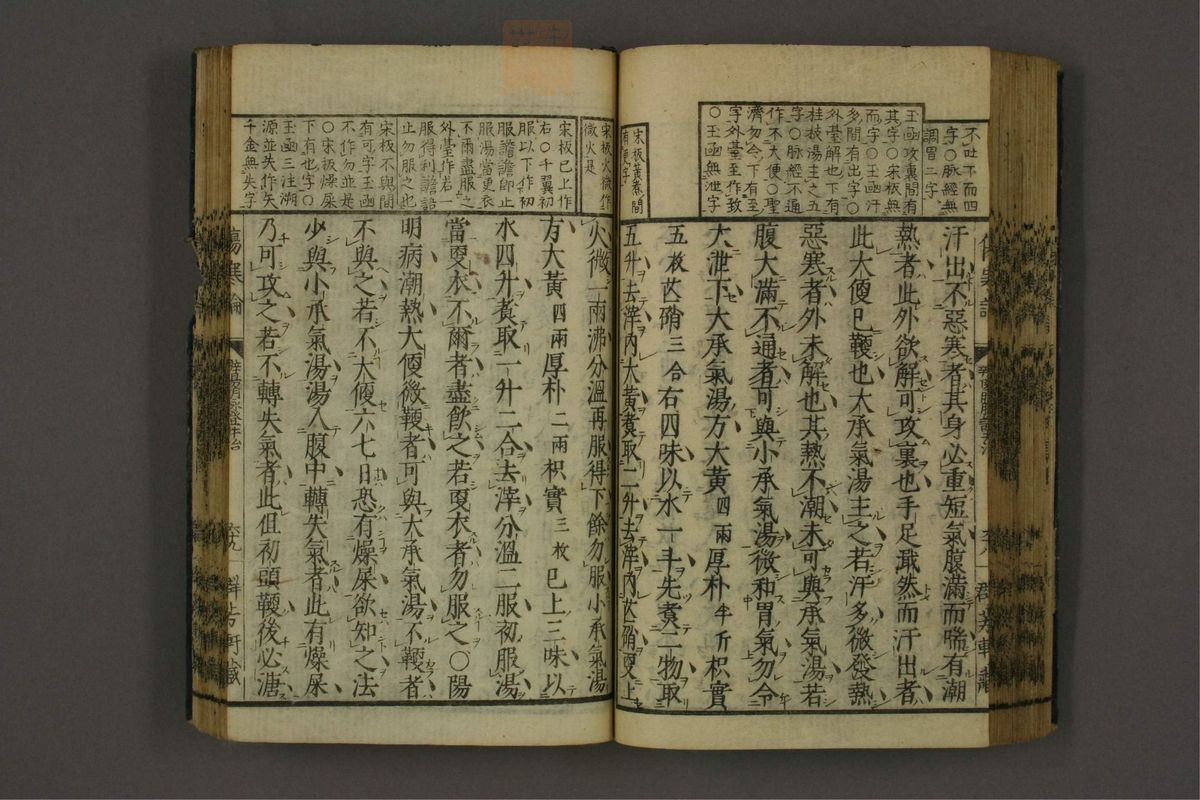 不吐下而四
字○脈經無
調胃二字
玉函攻裏間有
其字○宋板無
而字○玉函汗
多間有出字○
外臺解也下有
桂枝湯主之五
字○脈經不通
作不大便○聖
濟勿令下有至
字外臺至作致
○玉函無泄字
汗出不惡寒者其身必重短氣腹滿而喘有潮
熱者此外欲解可攻裏也手足濈然而汗出者
此大便已鞕也大承氣湯主之若汗多微發熱
惡寒者外未解也其熱不潮未可與承氣湯若
腹大滿不通者可與小承氣湯微和胃氣勿令
大泄下大承氣湯方大黃四兩厚朴半斤枳實
五枚芒硝三合右四味以水一斗先煮二物取
宋板黃煮間
有更字
五升去滓內大黃煮取二升去滓內芒硝更上
宋板火微作
微火是
火微一兩沸分溫再服得下餘勿服小承氣湯
宋板已上作
右○千翼初
服以下作初
服譫語即止
服湯當更衣
不爾盡服之
外臺作若一
服得利譫語
止勿服之也
宋板不與間
有可字玉函
不作勿並是
○宋板燥屎
下有也字○
玉函三注溯
源並失作矢
千金無失字
方大黃四兩厚朴二兩枳實三枚已上三味以
水四升煮取一升二合去滓分溫二服初服湯
當更衣不爾者盡飲之若更衣者勿服之○陽
明病潮熱大便微鞕者可與大承氣湯不鞕者
不與之若不大便六七日恐有燥屎欲知之法
少與小承氣湯湯入腹中轉失氣者此有燥屎
乃可攻之若不轉失氣者此但初頭鞕後必溏
傷寒論